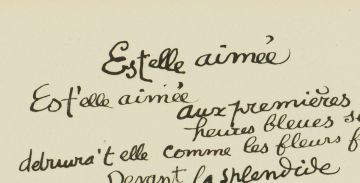 Estelle aimée
Est'elle aimée
aux premières
heures bleues
débruira't elle comme les fleurs f
Devant la splendide